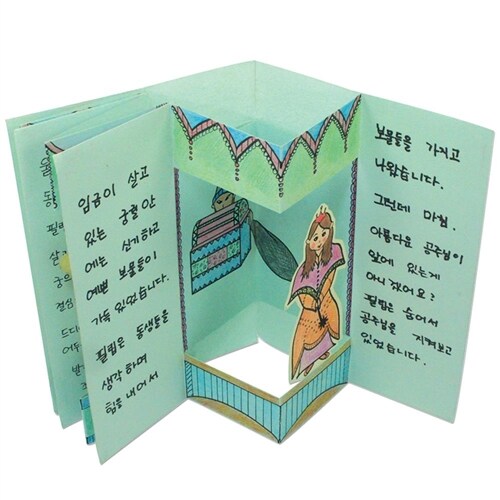 임금이 살고
있는 궁궐 안
에는 신기하고
예쁜 보물들이
가득 있었습니다.
필립은 동생들을
생각하며
힘을 내어서
보물들을 가지고
나왔습니다.
그런데 마침,
아름다운 공주님이
앞에 있는게
아니겠어요?
필립은 숨어서
공주님을 지켜보고
있었습니다.